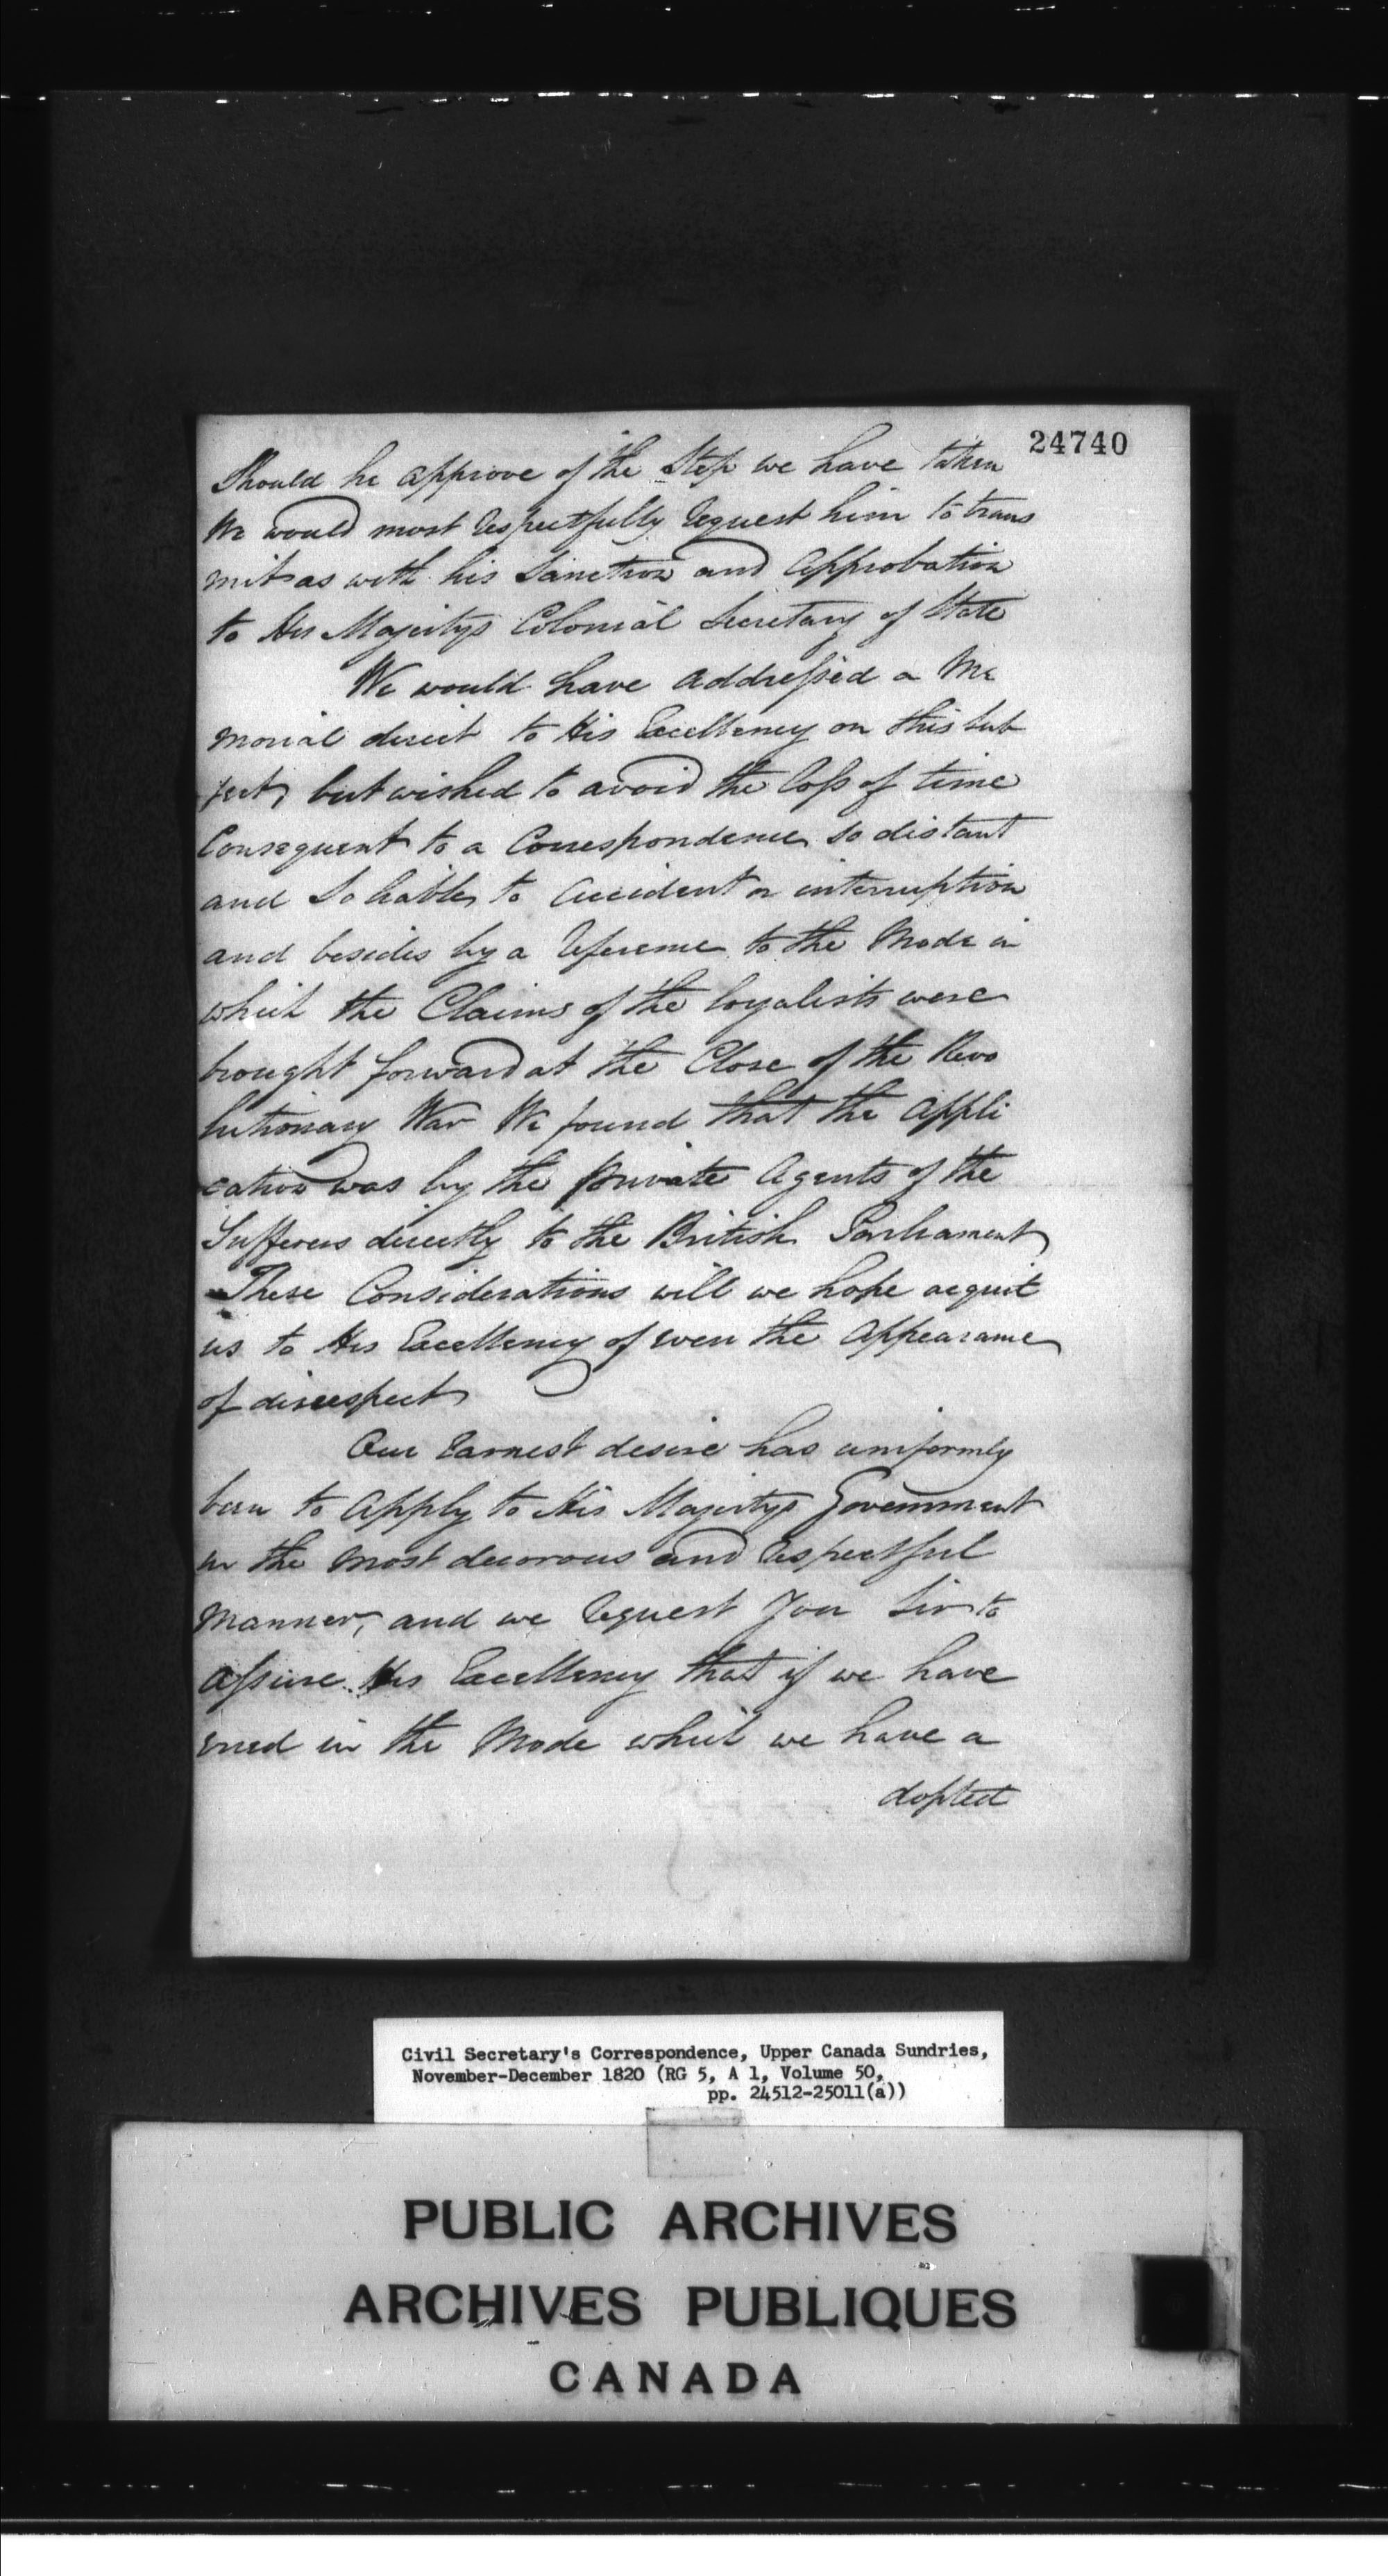 24740
Should he approve of the Step we have taken
We would most respectfully request him to trans
mit as with his Sanction and Approbation
to His Majestys Colonial Secretary of State
We would have addressed a Me
morial direct to His Excellency on this sub
ject, but wished to avoid the loss of time
Consequent to a Correspondence so distant
and so liable to Accident or interruption
and besides by a reference to the Mode in
which the Claims of the loyalists were
brought forward at the Close of the Revo
lutionary War We found that the Appli
cation was by the private Agents of the
Sufferers directly to the British Parliament
These Considerations will we hope acquit
us to His Excellency of even the Appearance
of disrespect
Our Earnest desire has uniformly
been to Apply to His Majestys Government
in the most decorous and respectful
Manner, and we request You Sir to
assure His Excellency that if we have
erred in the Mode which we have a
dopted
Civil Secretary's Correspondence, Upper Canada Sundries,
November-December 1820 (RG 5, A 1, Volume 50,
pp. 24512-25011(a))
PUBLIC ARCHIVES
ARCHIVES PUBLIQUES
CANADA